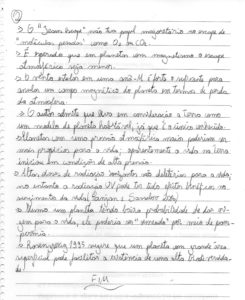 ②
→ O "Jeans escape" não tem papel majoritário no escape de
moléculas pesadas como O₂ ou CO₂.
→ É esperado que em planetas com magnetismo o escape
atmosférico seja menor.
→ O vento estelar em uma anã-M é forte o suficiente para
anular um campo magnético do planeta em termos de perda
da atmosfera.
→ O autor admite que leva em consideração a Terra como
um modelo de planeta habitável, já que é o único conhecido.
→ Planetas com uma atmosfera mais poderiam ser
mais propícios para a vida; a vida na Terra
iniciou em condições de alta pressão.
→ Altas doses de radiação ionizante são deletérias para a vida,
no entanto a radiação UV pode ter tido efeito benéfico no
surgimento da vida (Sagan
→ Mesmo um planeta tendo baixa probabilidade de dar ori-
gem para a vida, ele poderia ser "semeado" por meio de pans-
permia.
→ Rosenzweig 1995 sugere que um planeta em grande área
superficial pode facilitar a existência de uma alta biodiversida-
de!
FIM